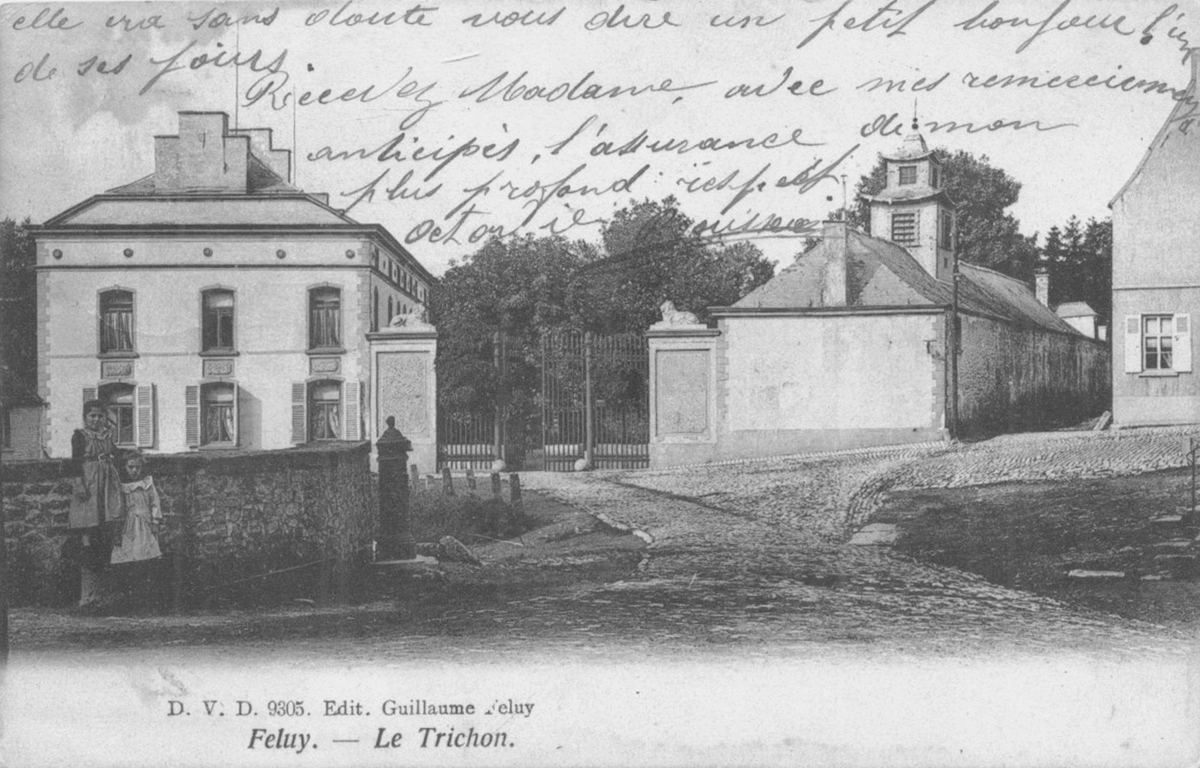 elle ira sans doute vous dire un petit bonjour l'un
de ses jours.
Recevez Madame, avec mes remerciements
anticipés, l'assurance de mon
plus profond respect
Octavie
D. V. D. 9305. Edit. Guillaume Feluy
Feluy. — Le Trichon.